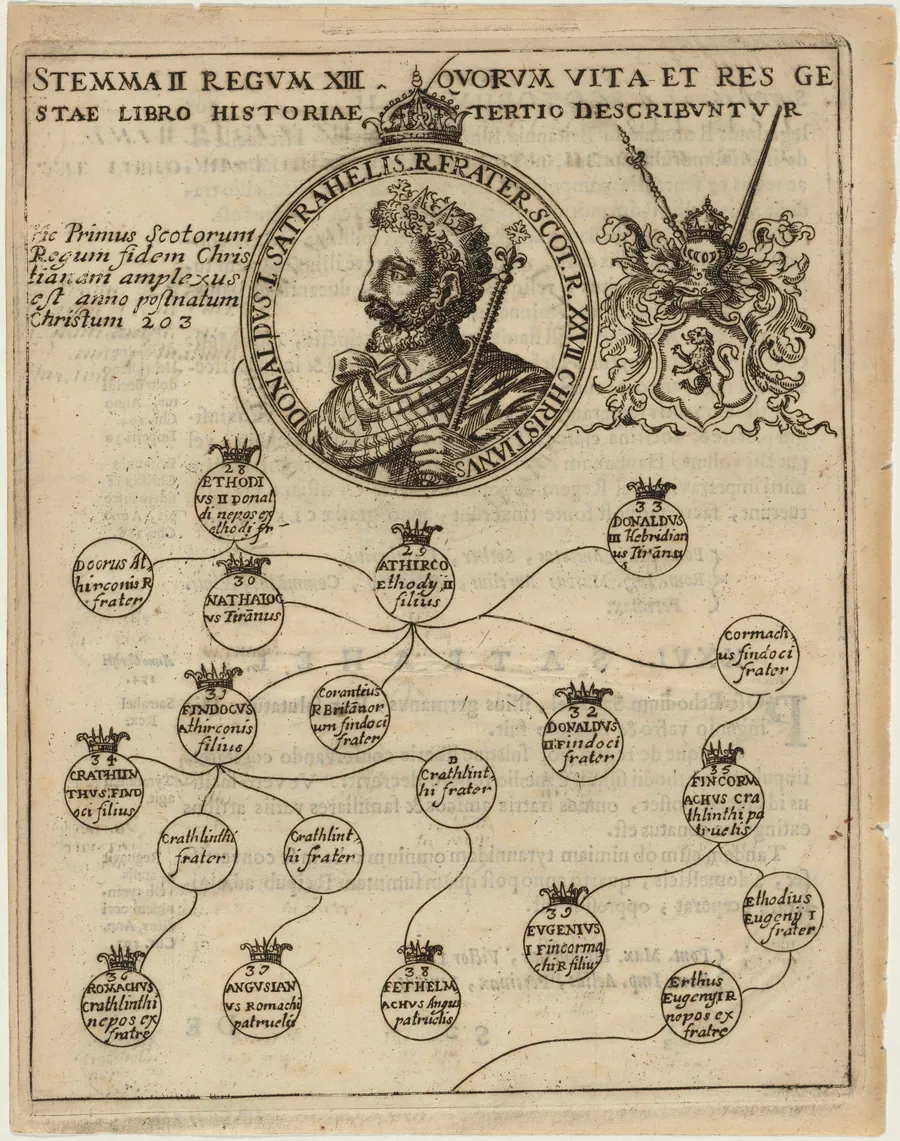 STEMMA II REGVM XIII QVORVM VITA ET RES GE
STAE LIBRO HISTORIAE TERTIO DESCRIBVNTVR
DONALDVS I SATRAHELIS.R.FRATER.SCOT.R.XXVII CHRISTIANVS
Hic Primus Scotorum
Regum fidem Chris
tianam amplexus
est anno postnatum
Christum 203
28
ETHODI
VS II Donal
di nepos ex
ethodi fr
Doorus At
hirconis R
frater
29
ATHIRCO
Ethody II
filius
30
NATHALOC
VS Tirānus
33
DONALDVS
III Hebridian
us Tirānu
s
Cormach
us findoci
frater
31
FINDOCVS
Athirconis
filius
Corantius
R Britānor
um findoci
frater
32
DONALDVS
II Findoci
frater
34
CRATHLIN
THVS FIND
oci filius
D
Crathlint
hi frater
35
FINCORM
ACHVS Cra
thlinthi pa
truelis
Crathlinthi
frater
Crathlint
hi frater
39
EVGENIVS
I Fincorma
chi R filius
Ethodius
Eugenij I
frater
36
ROMACHVS
Crathlinthi
nepos ex
fratre
37
ANGVSIAN
VS Romachi
patruelis
38
FETHELM
ACHVS Angus
patruelis
Erthus
Eugenij I R
nepos ex
fratre